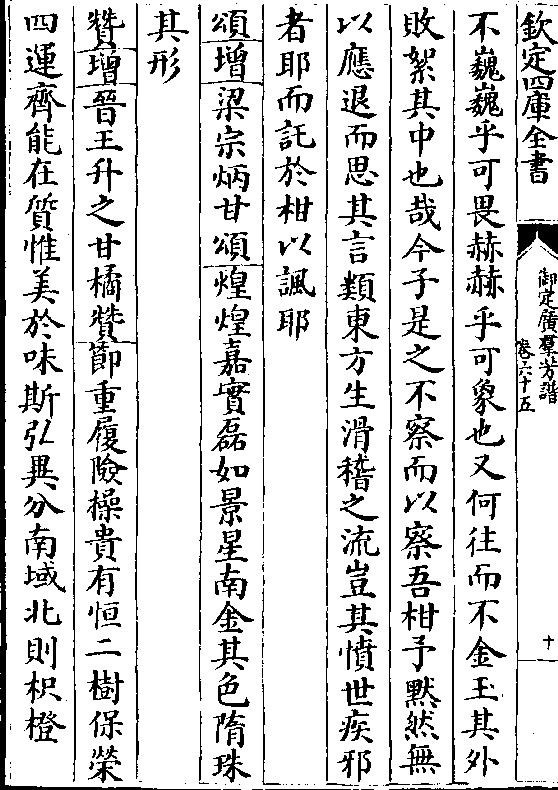 欽定四庫全書
御定廣羣芳譜
卷六十五
十
不巍巍乎可畏赫赫乎可象也又何往而不金玉其外
敗絮其中也哉今子是之不察而以察吾柑予黙然無
以應退而思其言類東方生滑稽之流豈其憤世疾邪
者耶而託於柑以諷耶
頌增梁宗炳甘頌煌煌嘉實磊如景星南金其色隋珠
其形
贊增晉王升之甘橘贊節重履險操貴有恒二樹保榮
四運齊能在質惟美於味斯弘異分南域北則枳橙